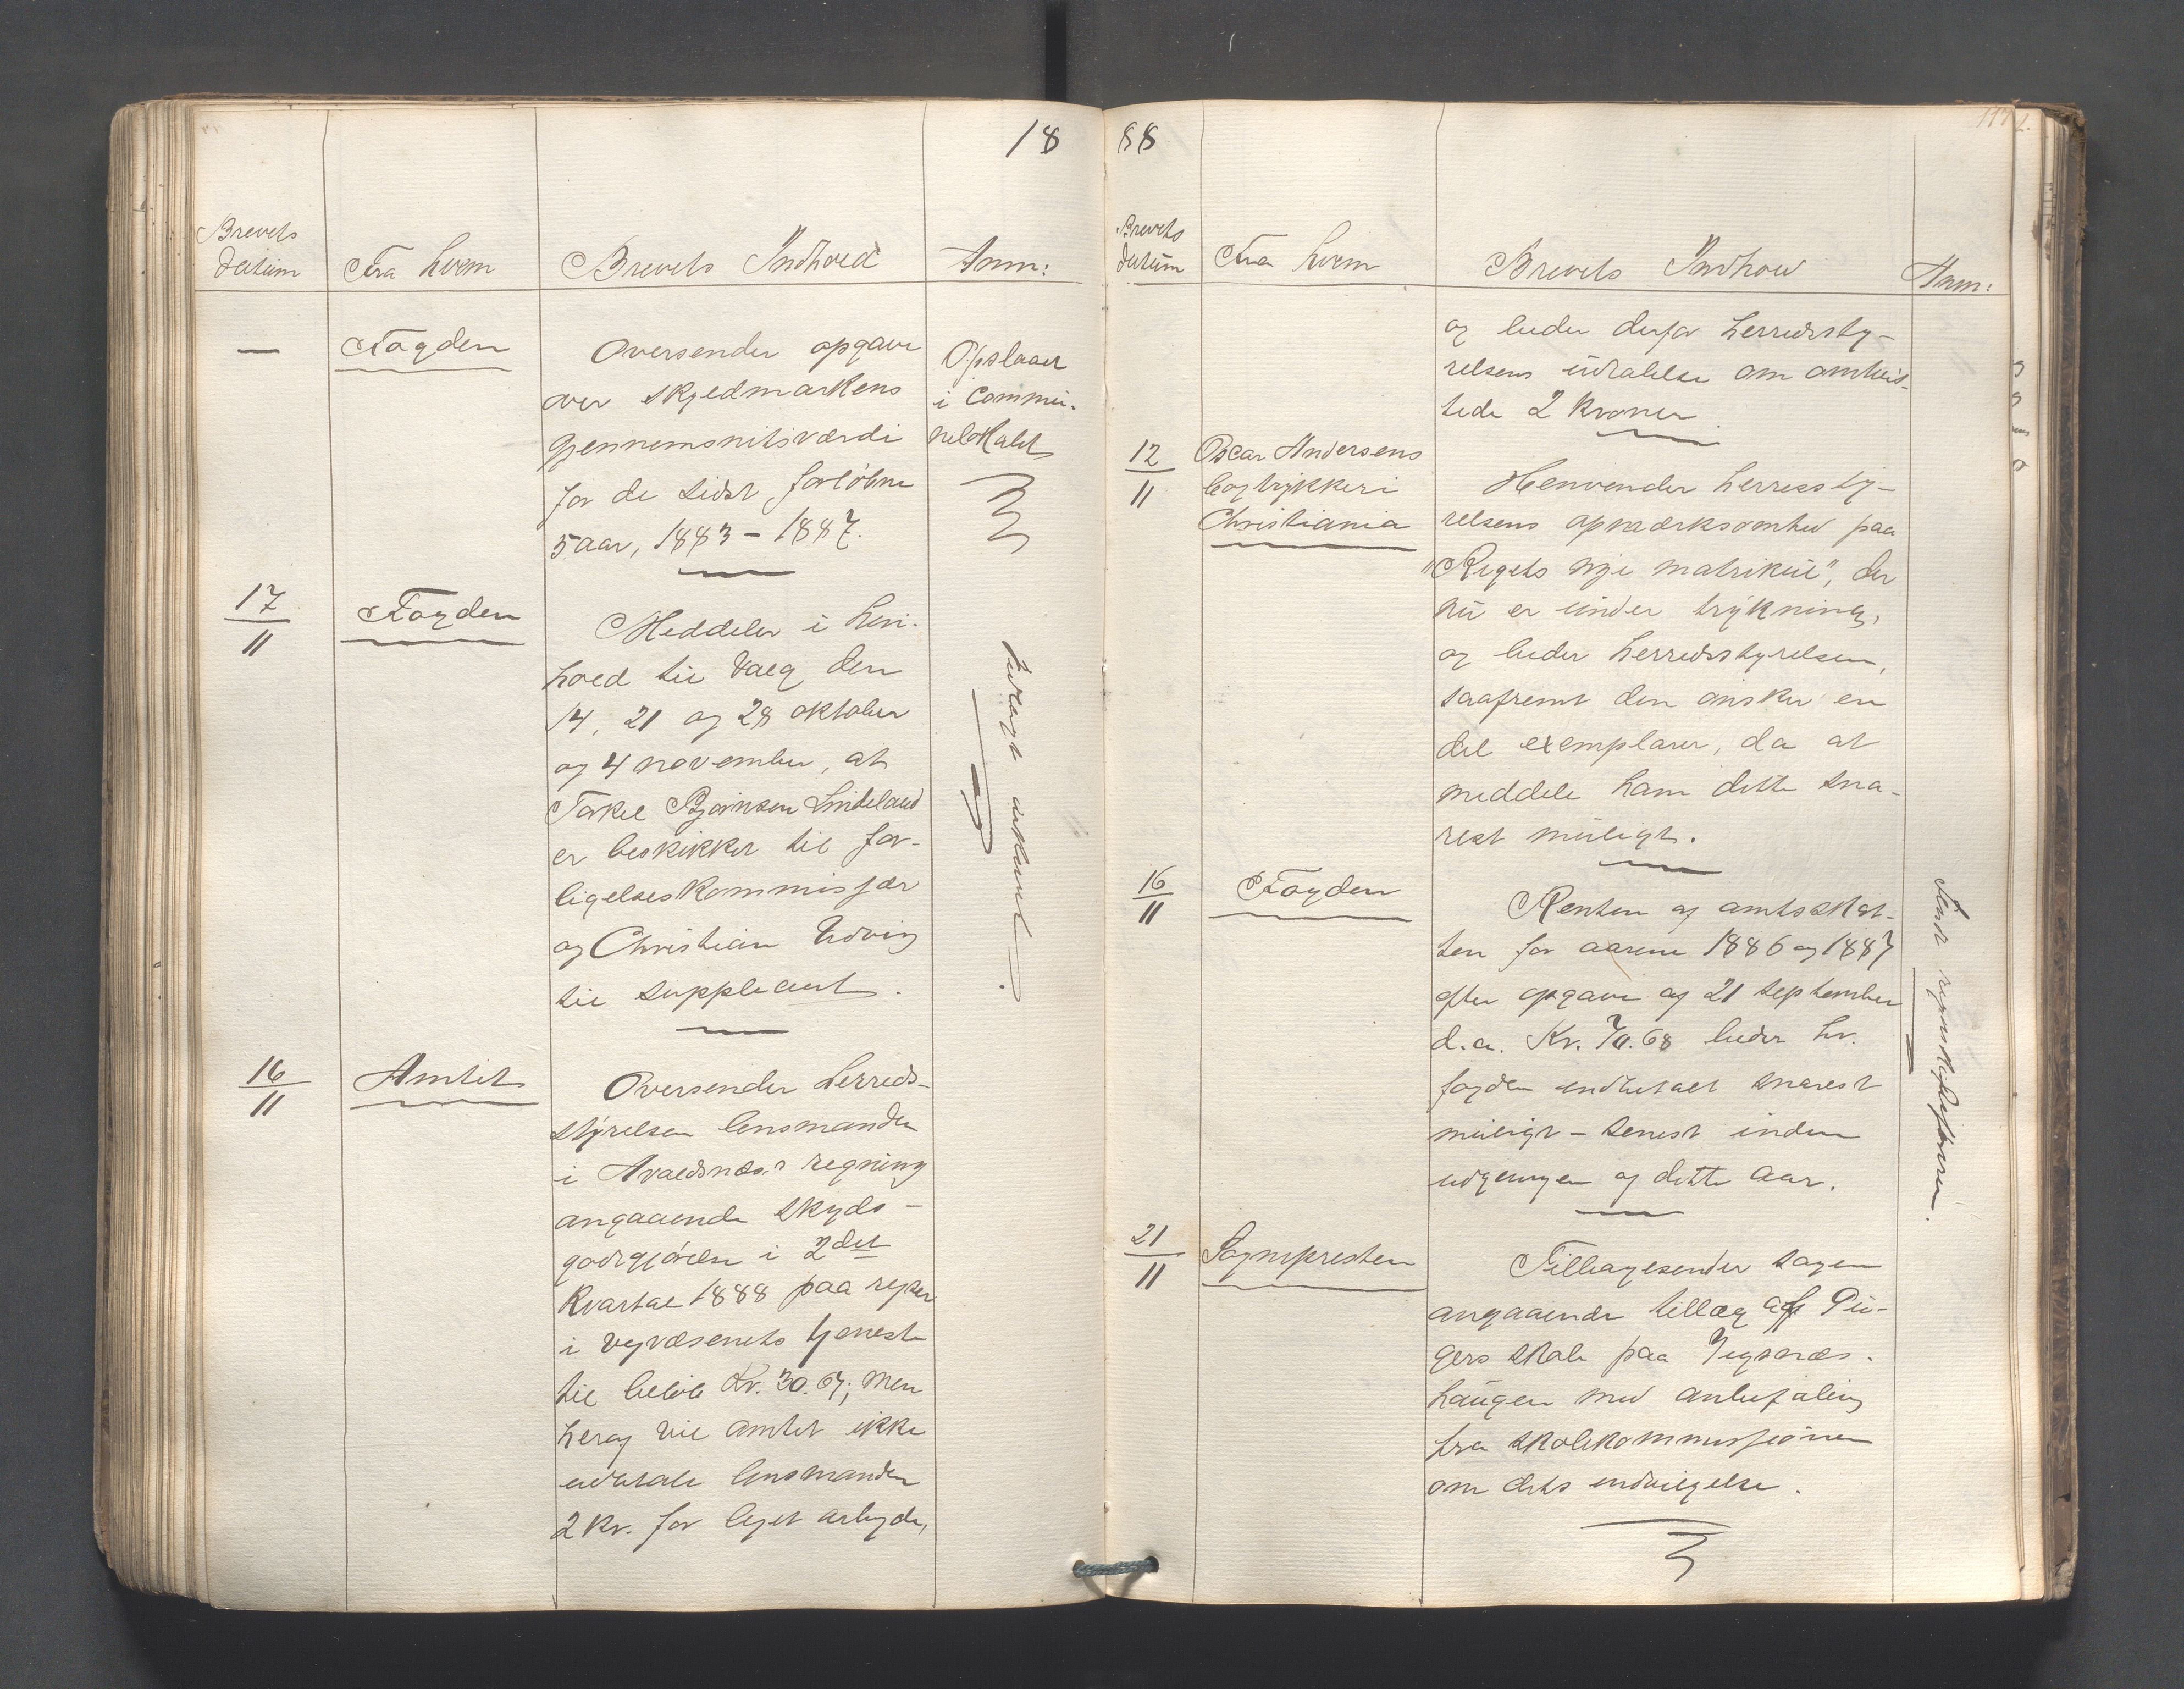 18 88
Brevets
datum
Fra hvem
Brevets Indhold
Anm:
—
Fogden
Oversender opgave
over skyldmarkens
gjennemsnitsværdi
for de sidst forløbne
5 aar, 1883 – 1887.
Opslaaet
i commu-
nelokalet
17/11
Fogden
Meddeler i hen-
hold til valg den
14, 21 og 28 oktober
og 4 november, at
Torkel Bjørnsen Lindeland
er beskikket til for-
ligelseskommissær
og Christian Udvig
til suppleant.
16/11
Amtet
Oversender herreds-
styrelsen lensmanden
i Avaldsnæs's regning
angaaende skyds-
godtgjørelse i 2det
kvartal 1888 paa rejser
i vejvæsenets tjeneste
til beløb Kr. 30.67; men
heraf vil amtet ikke
udbetale lensmanden
2 kr. for lejet arbejde,
Brevets
datum
Fra hvem
Brevets Indhold
Anm:
og beder derfor herredssty-
relsens udtalelse om omtvis-
tede 2 kroner.
12/11
Oscar Andersens
bogtrykkeri
Christiania
Henvender herredssty-
relsens opmærksomhed paa
"Rigets nye matrikul", der
nu er under trykning,
og beder herredsstyrelsen,
saafremt den ønsker en
del exemplarer, da at
meddele ham dette sna-
rest muligt.
16/11
Fogden
Resten af amtsskat-
ten for aarene 1886 og 1887
efter opgave af 21 september
d.a. Kr. 70.68 beder hr.
fogden indbetalt snarest
muligt – senest inden
udgangen af dette aar.
21/11
Sognepresten
Tilbagesender sagen
angaaende tillæg af Pi-
gers skole paa Vigsnæs-
haugen med anbefaling
fra skolekommissionen
om dets indvilgelse.